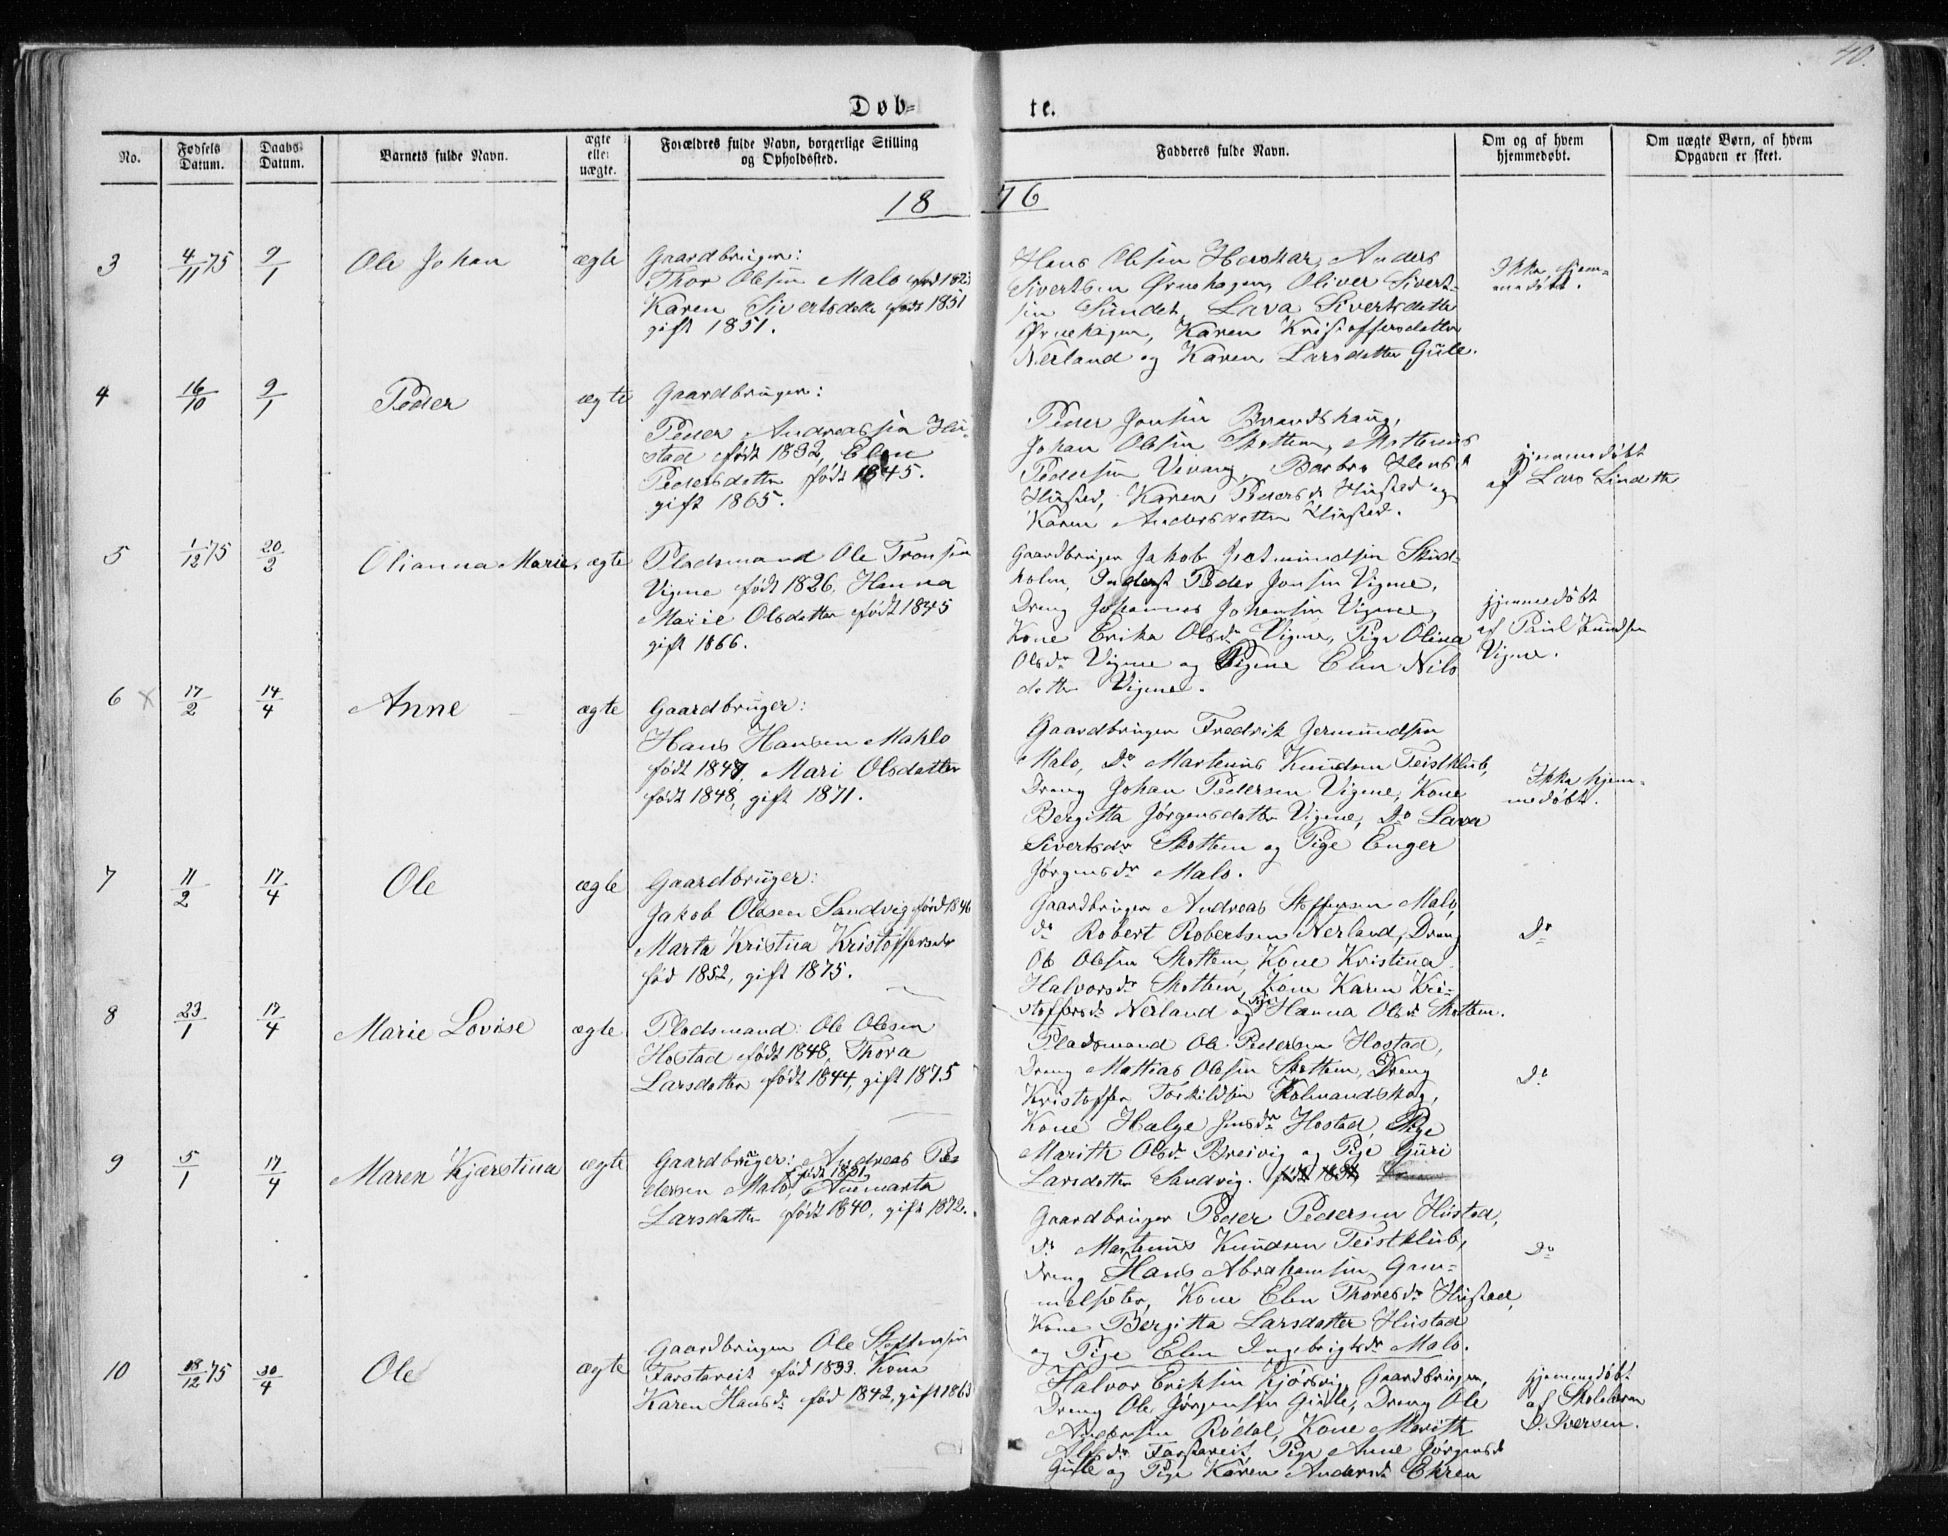 40.
Døb= te.
No. Fødsels Datum. Daabs Datum. Barnets fulde Navn. ægte eller uægte. Forældres fulde Navn, borgerlige Stilling og Opholdssted. Fadderes fulde Navn. Om og af hvem hjemmedøbt. Om uægte Børn, af hvem Opgaven er skeet.
18 76
3 4/11 75 9/1 Ole Johan ægte
Gaardbruger:
Thor Olesen Malo
Karen Sivertsdatter født 1851
gift 1851.
Hans Olesen Anders
Sivertsen Ørnehagen, Oliver Sivert-
sen Sundet, Lava Sivertsdatter
Ørnehagen, Karen Kristoffersdatter
Nerland og Karen Larsdatter Gule.
Ikke hjem-
medøbt.
4 16/10 9/1 Peder ægte
Gaardbruger:
Peder Andreassen Hu-
stad født 1832, Elen
Pedersdatter født 1845.
gift 1865.
Peder Jonsen Brandshaug,
Johan Olesen Skottem, Martenus
Pedersen Vevang, Barbro
Hustad, Karen Pedersdr Hustad og
Karen Andersdatter Hustad.
hjemmedøbt
af Lars
5 1/12 75 20/2 Olianna Marie, ægte
Pladsmand Ole Tronsen
Vigme født 1826, Hanna
Marie Olsdatter født 1845
gift 1866.
Gaardbruger Jakob
Inderst Peder Jonsen Vigme,
Dreng Johannes Johansen Vigme,
Kone Erika Olsdr Vigme, Pige Olina
Olsdr Vigme og Pigene Elen Nils
datter Vigme.
hjemmedøbt
af Paul Knudsen
Vigme.
6 x 17/2 14/4 Anne ægte
Gaardbruger:
Hans Hansen Mahlo
født 1847, Mari Olsdatter
født 1848, gift 1871.
Gaardbruger Fredrik Jermundsen
Malo, Do Martenus Knudsen Teistklub,
Dreng Johan Pedersen Vigme, Kone
Bergitta Jørgensdatter Vigme, Do Lava
Sivertsdr Skottem og Pige Enger
Jørgensdr Malo.
Ikke hjem-
medøbt.
7 11/2 17/4 Ole ægte
Gaardbruger:
Jakob Olesen Sandvig fød 1846
Marta Kristina Kristoffersdr
fød 1852, gift 1875.
Gaardbruger Andreas Steffensen Malo,
do Robert Robertsen Nerland, Dreng
Ole Olesen Skottem, Kone Kristina
Halvorsdr Skottem, Kone Karen Kri-
stoffersdr Nerland og Pige Hanna Olsdr Skottem.
Do
8 23/1 17/4 Marie Lovise ægte
Pladsmand: Ole Olesen
Hostad født 1848, Thora
Larsdatter født 1844, gift 1875
Pladsmand Ole Pedersen Hostad,
Dreng Mattias Olesen Skottem, Dreng
Kristoffer Torkildsen Kolmandskog,
Kone Helge Jensdr Hostad Pige
Marith Olsdr Breivig og Pige Guri
Larsdatter Sandvig.
Do
9 5/1 17/4 Maren Kjærstina ægte
Gaardbruger: Andreas Pe-
dersen Malo, født 1821, Anemarta
Larsdatter født 1840, gift 1872.
Gaardbruger Peder Pedersen Hustad,
do Martenus Knudsen Teistklub,
Dreng Hans Abrahamsen Gam-
melseter, Kone Elen Thoresdr Hustad,
Kone Bergitta Larsdatter Hustad
og Pige Elen Ingebrigtsdr Malo.
Do
10 18/12 75 30/4 Ole ægte
Gaardbruger Ole Steffensen
Farstareit fød 1833. Kone
Karen Hansdr fød 1842, gift 1863
Halvor Eriksen Kjørsvig, Gaardbruger,
Dreng Ole Jørgensen Gulle, Dreng Ole
Andersen Rødal, Kone Marith
Farstareit, Pige Anne Jørgensdr
Gulle og Pige Karen Andersdr Ekren
hjemmedøbt
af Skolelærer
P. Iversen.